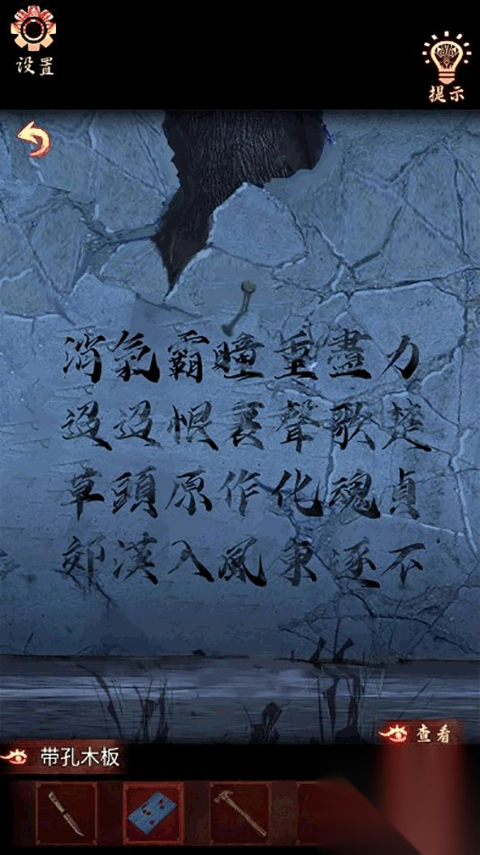 设置
提示
力盡重瞳霸氣消
楚歌聲裏恨迢迢
貞魂化作原頭草
不逐東風入漢郊
查看
带孔木板